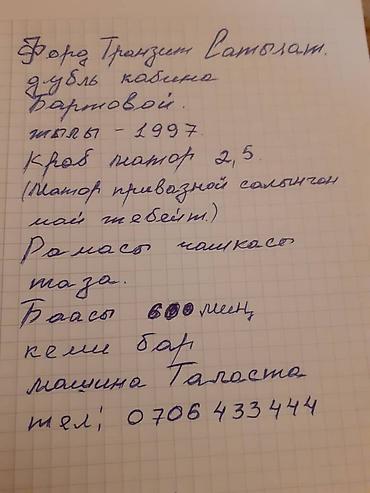 Форд Транзит Сатылат.
дубль кабина
Бартовой.
жылы - 1997.
Кроб матор 2,5.
(Матор привазной салынган
май жебейт.)
Рамасы чашкасы
таза.
Баасы 600 миң
кеми бар
машина Таласта
тел; 0706 433 444